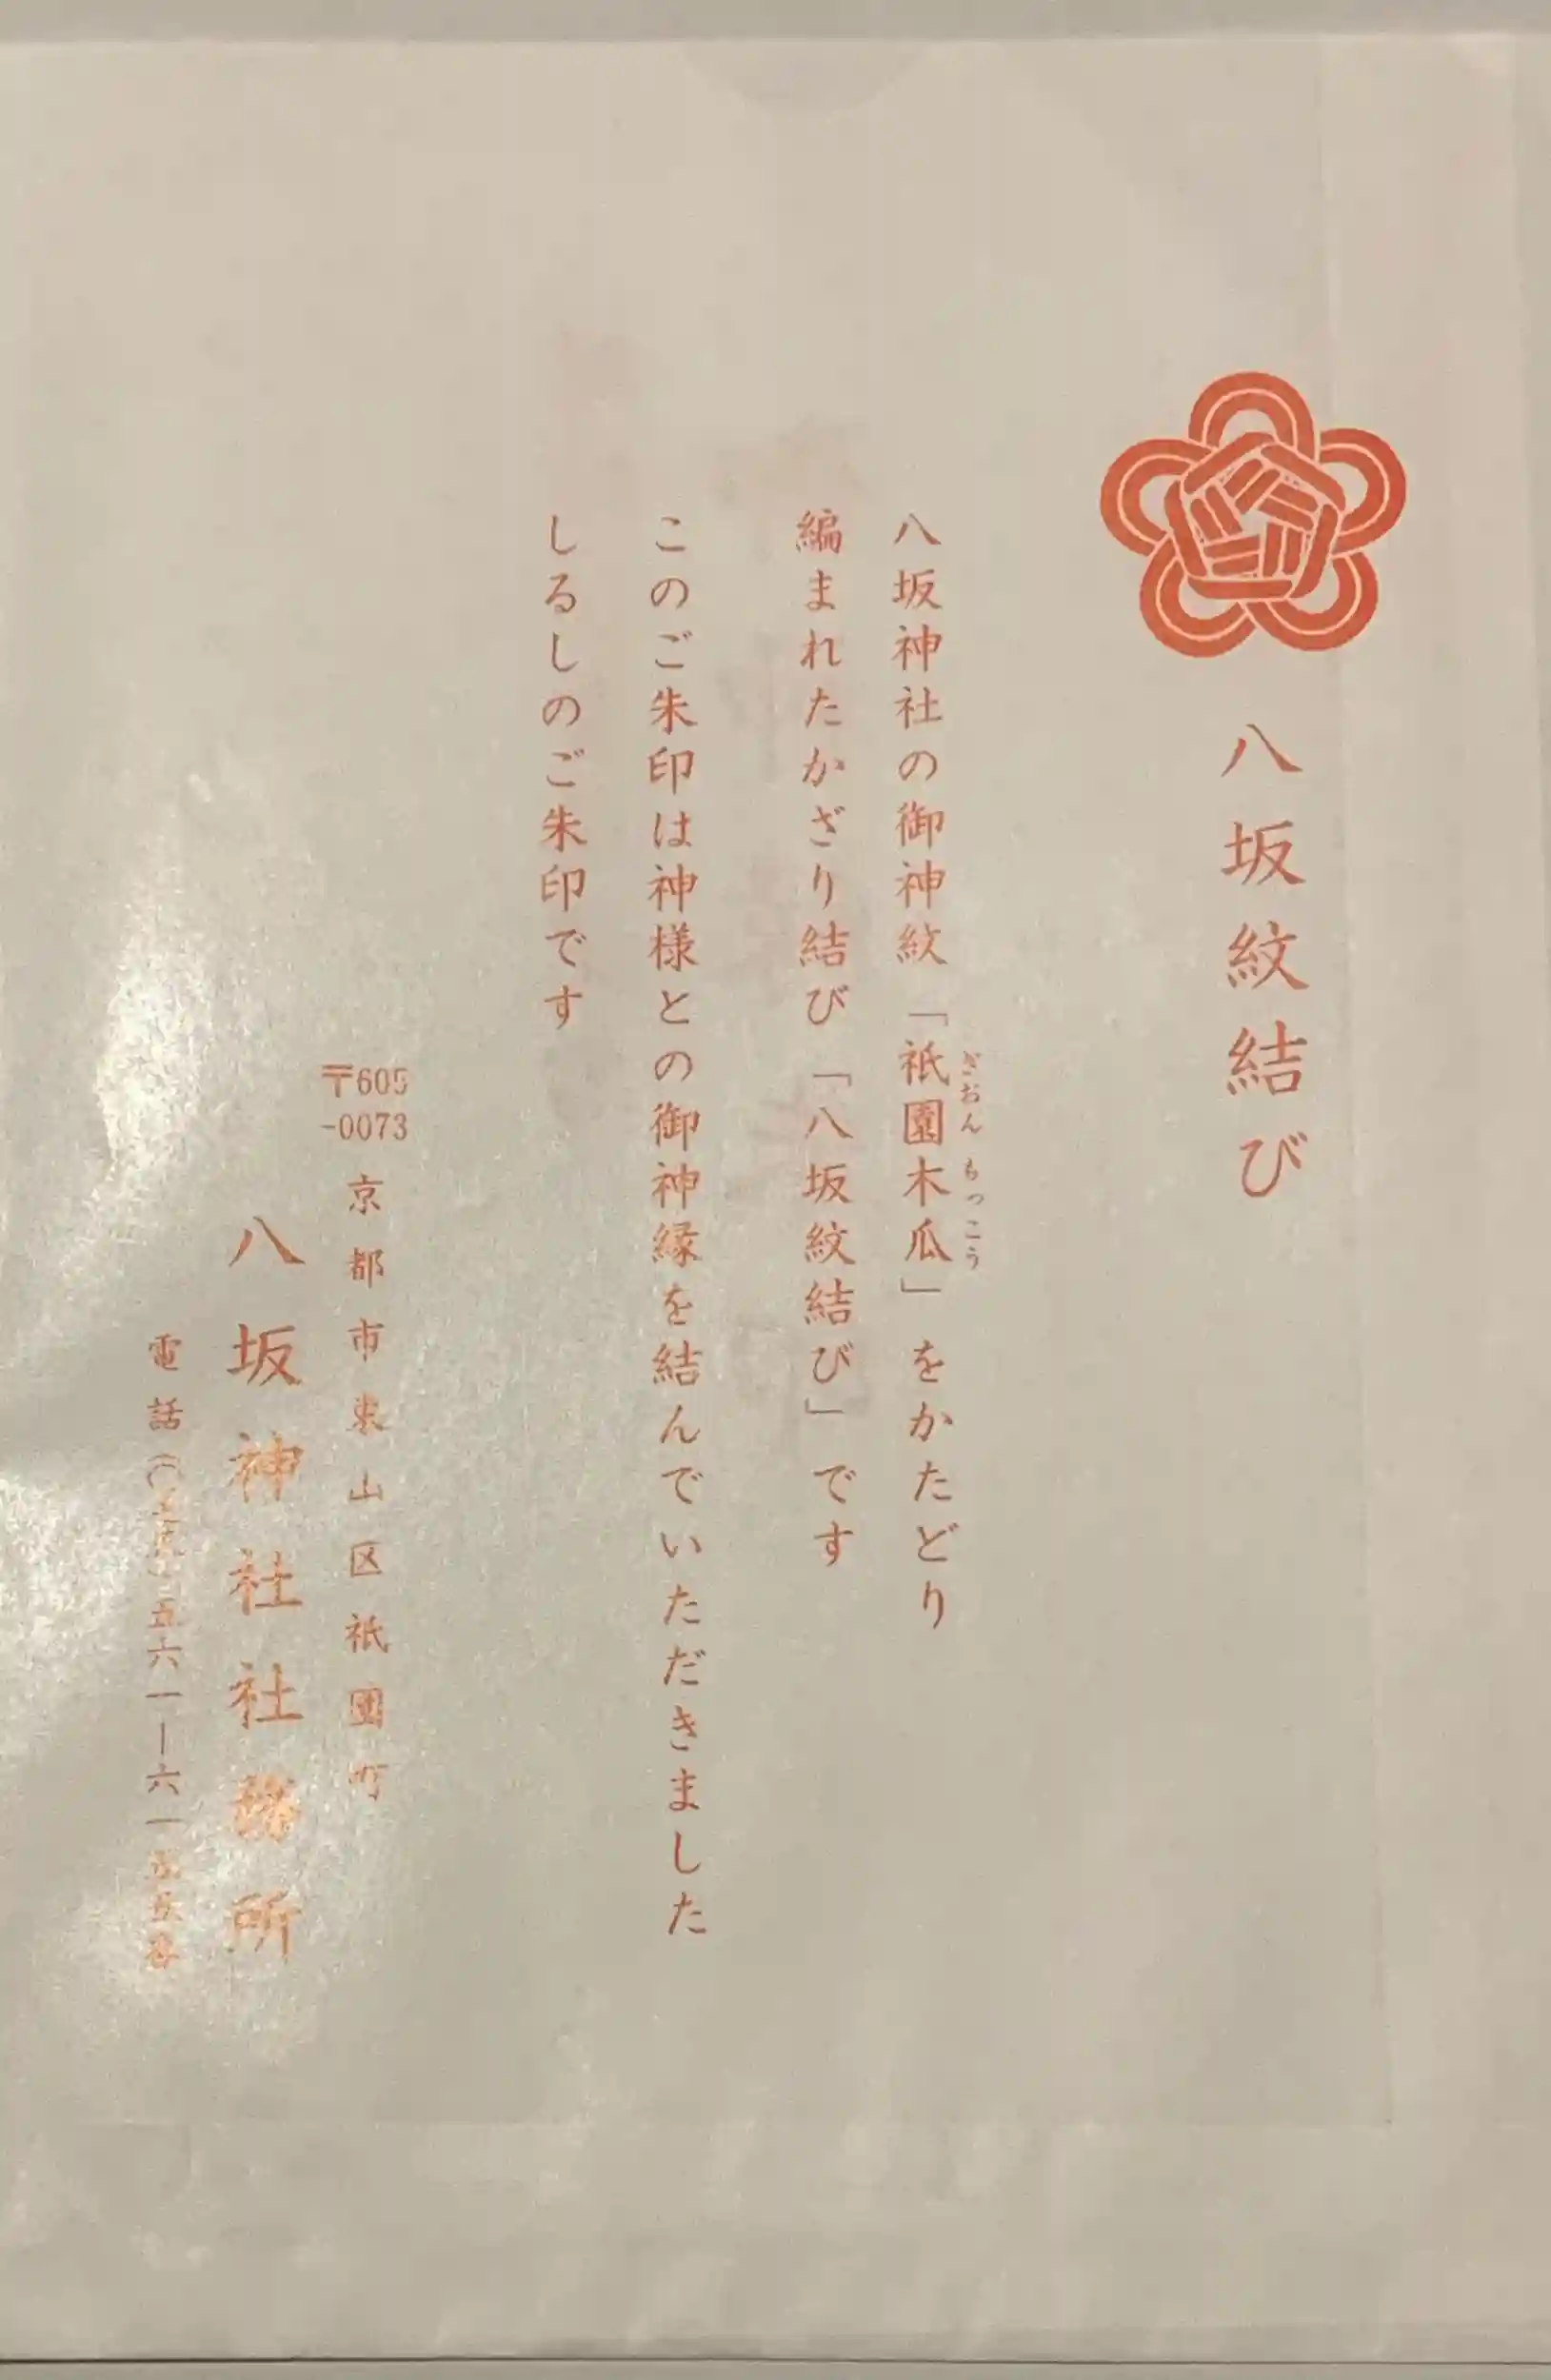 八坂紋結び
八坂神社の御神紋「祇園木瓜」をかたどり
ぎおん もっこう
編まれたかざり結び「八坂紋結び」です
このご朱印は神様との御神縁を結んでいただきました
しるしのご朱印です
〒605
-0073
京都市東山区祇園町
八坂神社社務所
電話(〇七五)五六一―六一五五番